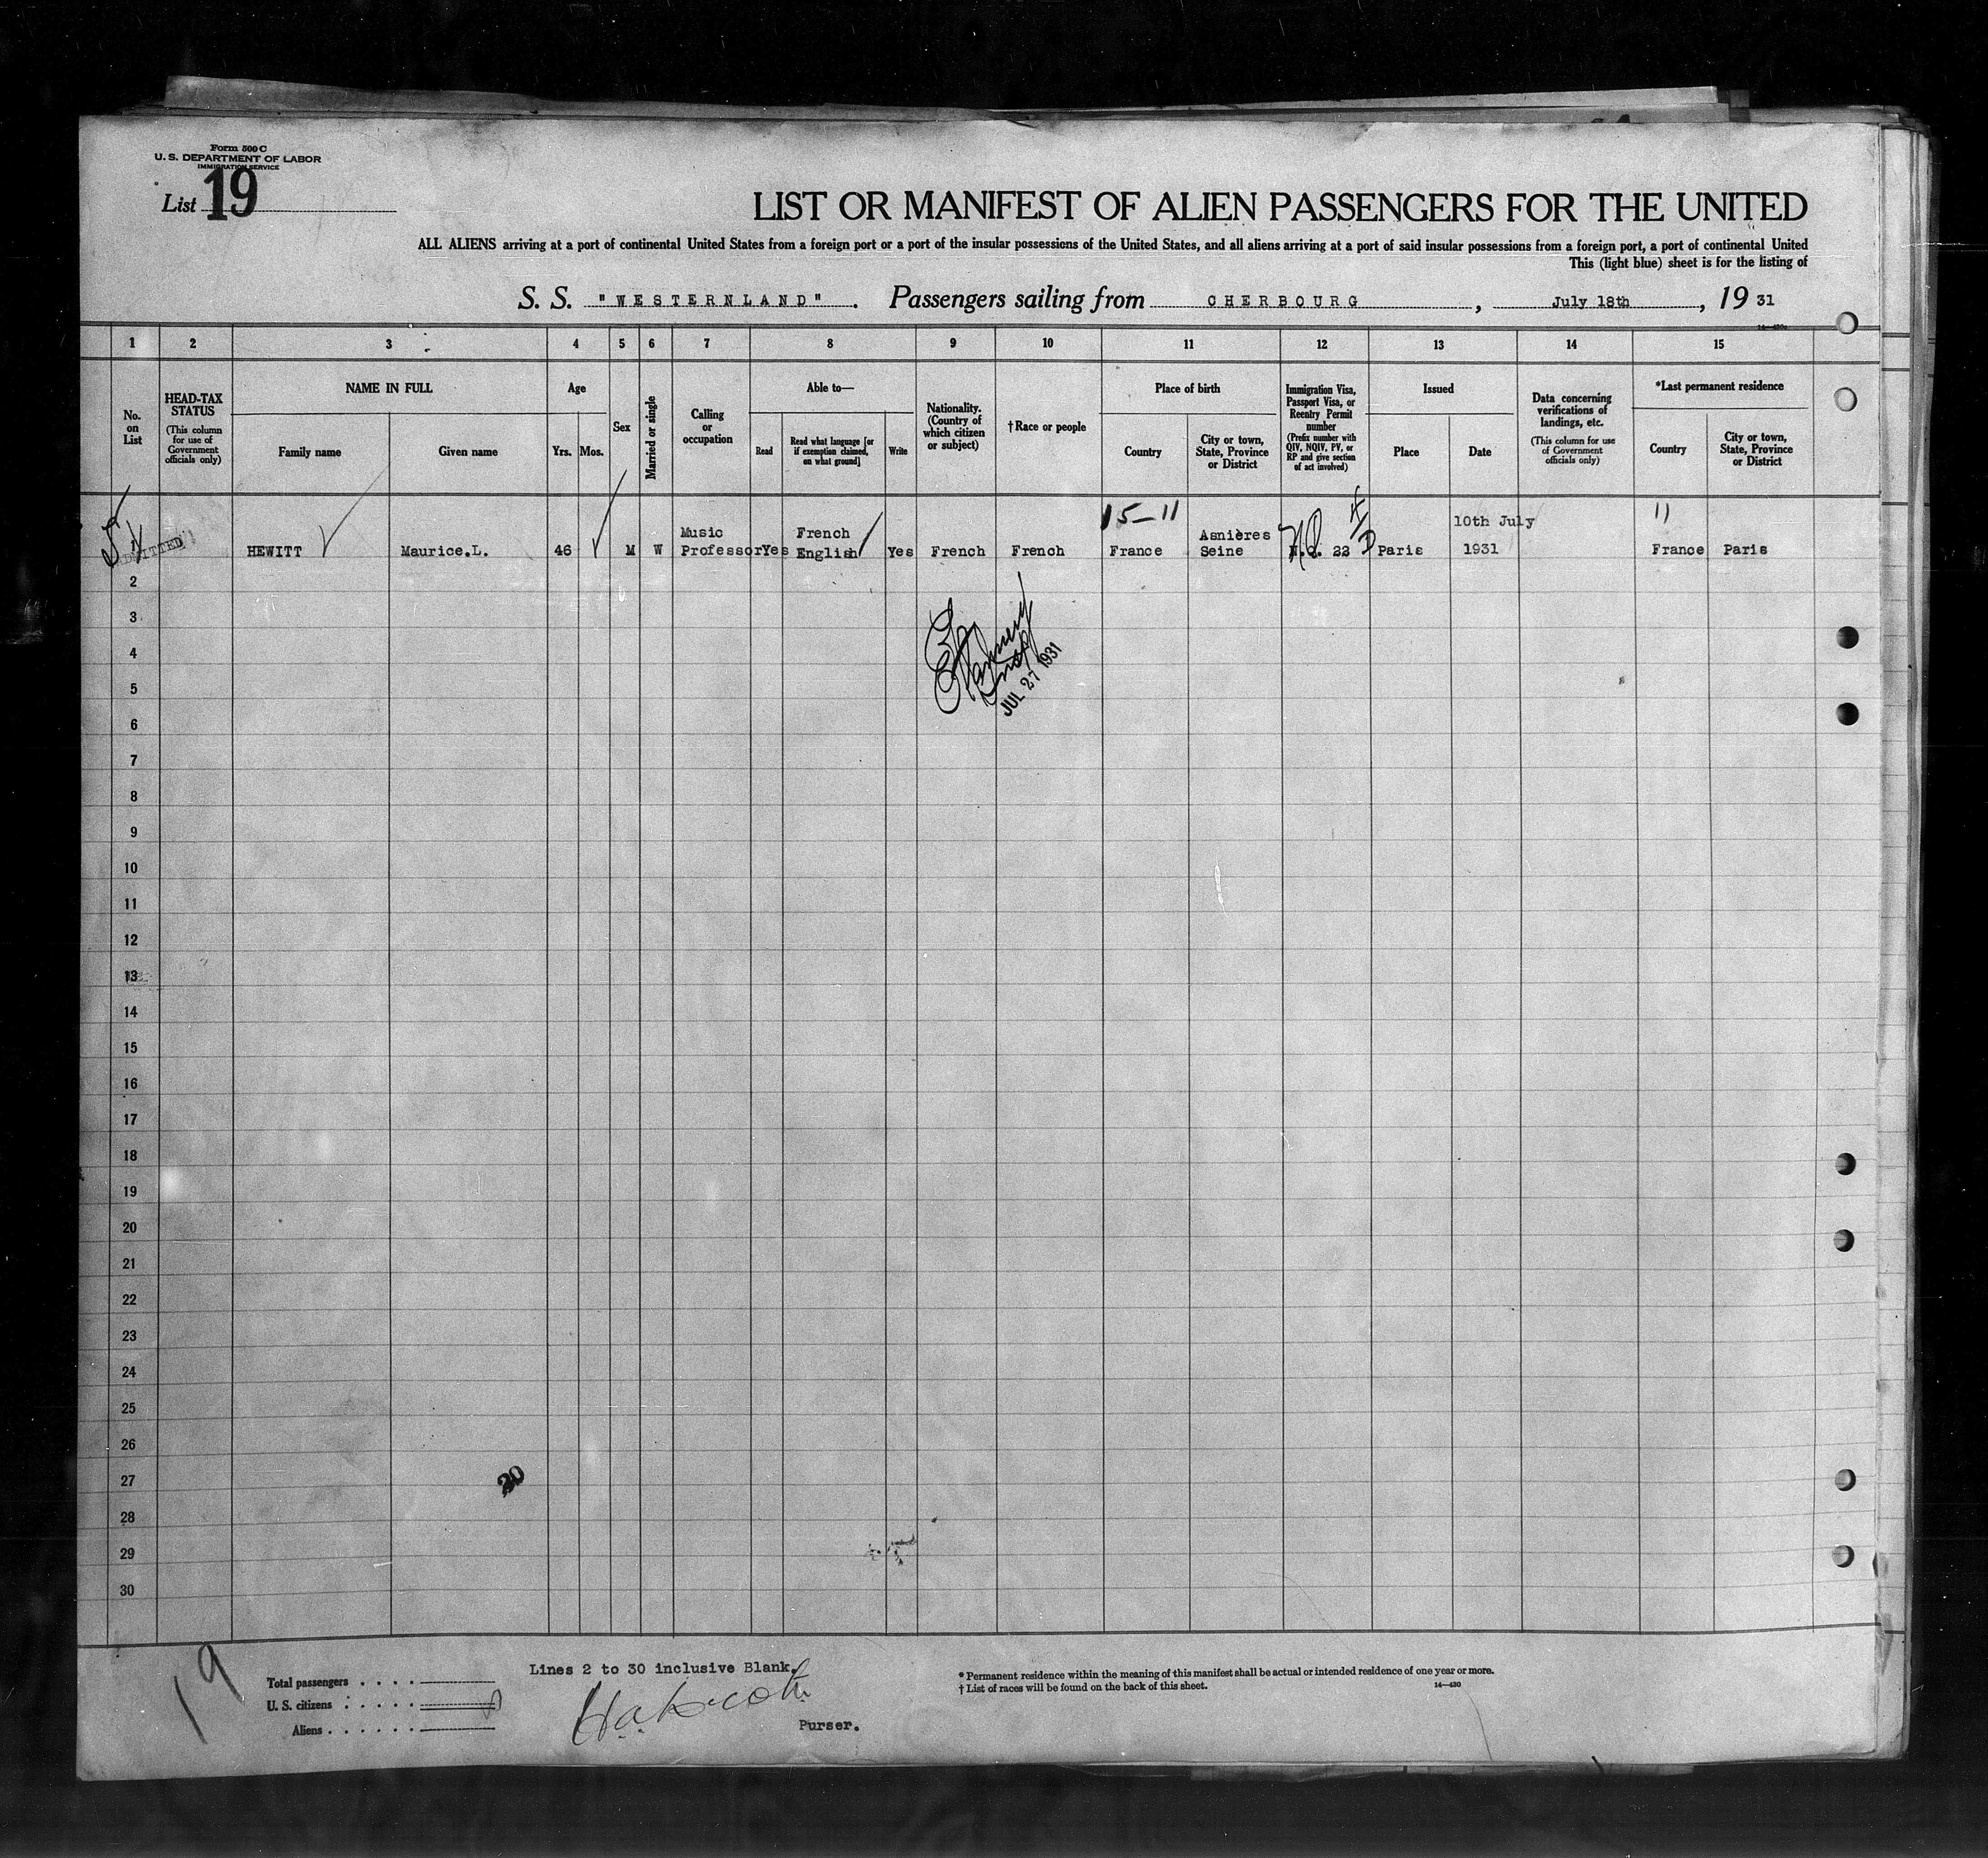 Form 500 C
U. S. DEPARTMENT OF LABOR
IMMIGRATION SERVICE
List 19
LIST OR MANIFEST OF ALIEN PASSENGERS FOR THE UNITED
ALL ALIENS arriving at a port of continental United States from a foreign port or a port of the insular possessions of the United States, and all aliens arriving at a port of said insular possessions from a foreign port, a port of continental United
This (light blue) sheet is for the listing of
S. S. "WESTERNLAND". Passengers sailing from CHERBOURG, July 18th, 19 31
1 2 3 4 5 6 7 8 9 10 11 12 13 14 15
No. on List
HEAD-TAX STATUS
(This column for use of Government officials only)
NAME IN FULL
Family name
Given name
Age
Yrs. Mos.
Sex
Married or single
Calling or occupation
Able to—
Read
Read what language [or if exemption claimed, on what ground]
Write
Nationality. (Country of which citizen or subject)
†Race or people
Place of birth
Country
City or town, State, Province or District
Immigration Visa, Passport Visa, or Reentry Permit number
(Prefix number with QIV, NQIV, PV, or RP and give section of act involved)
Issued
Place
Date
Data concerning verifications of landings, etc.
(This column for use of Government officials only)
*Last permanent residence
Country
City or town, State, Province or District
15-11
11
ADMITTED
HEWITT Maurice.L. 46 M W Music Professor Yes French English Yes French French France Asnières Seine Paris 10th July 1931 France Paris
2
3
4
5
JUL 27 1931
6
7
8
9
10
11
12
13
14
15
16
17
18
19
20
21
22
23
24
25
26
27
20
28
29
30
19
Lines 2 to 30 inclusive Blank.
Total passengers
U. S. citizens
Aliens
Purser.
* Permanent residence within the meaning of this manifest shall be actual or intended residence of one year or more.
† List of races will be found on the back of this sheet.
14—430